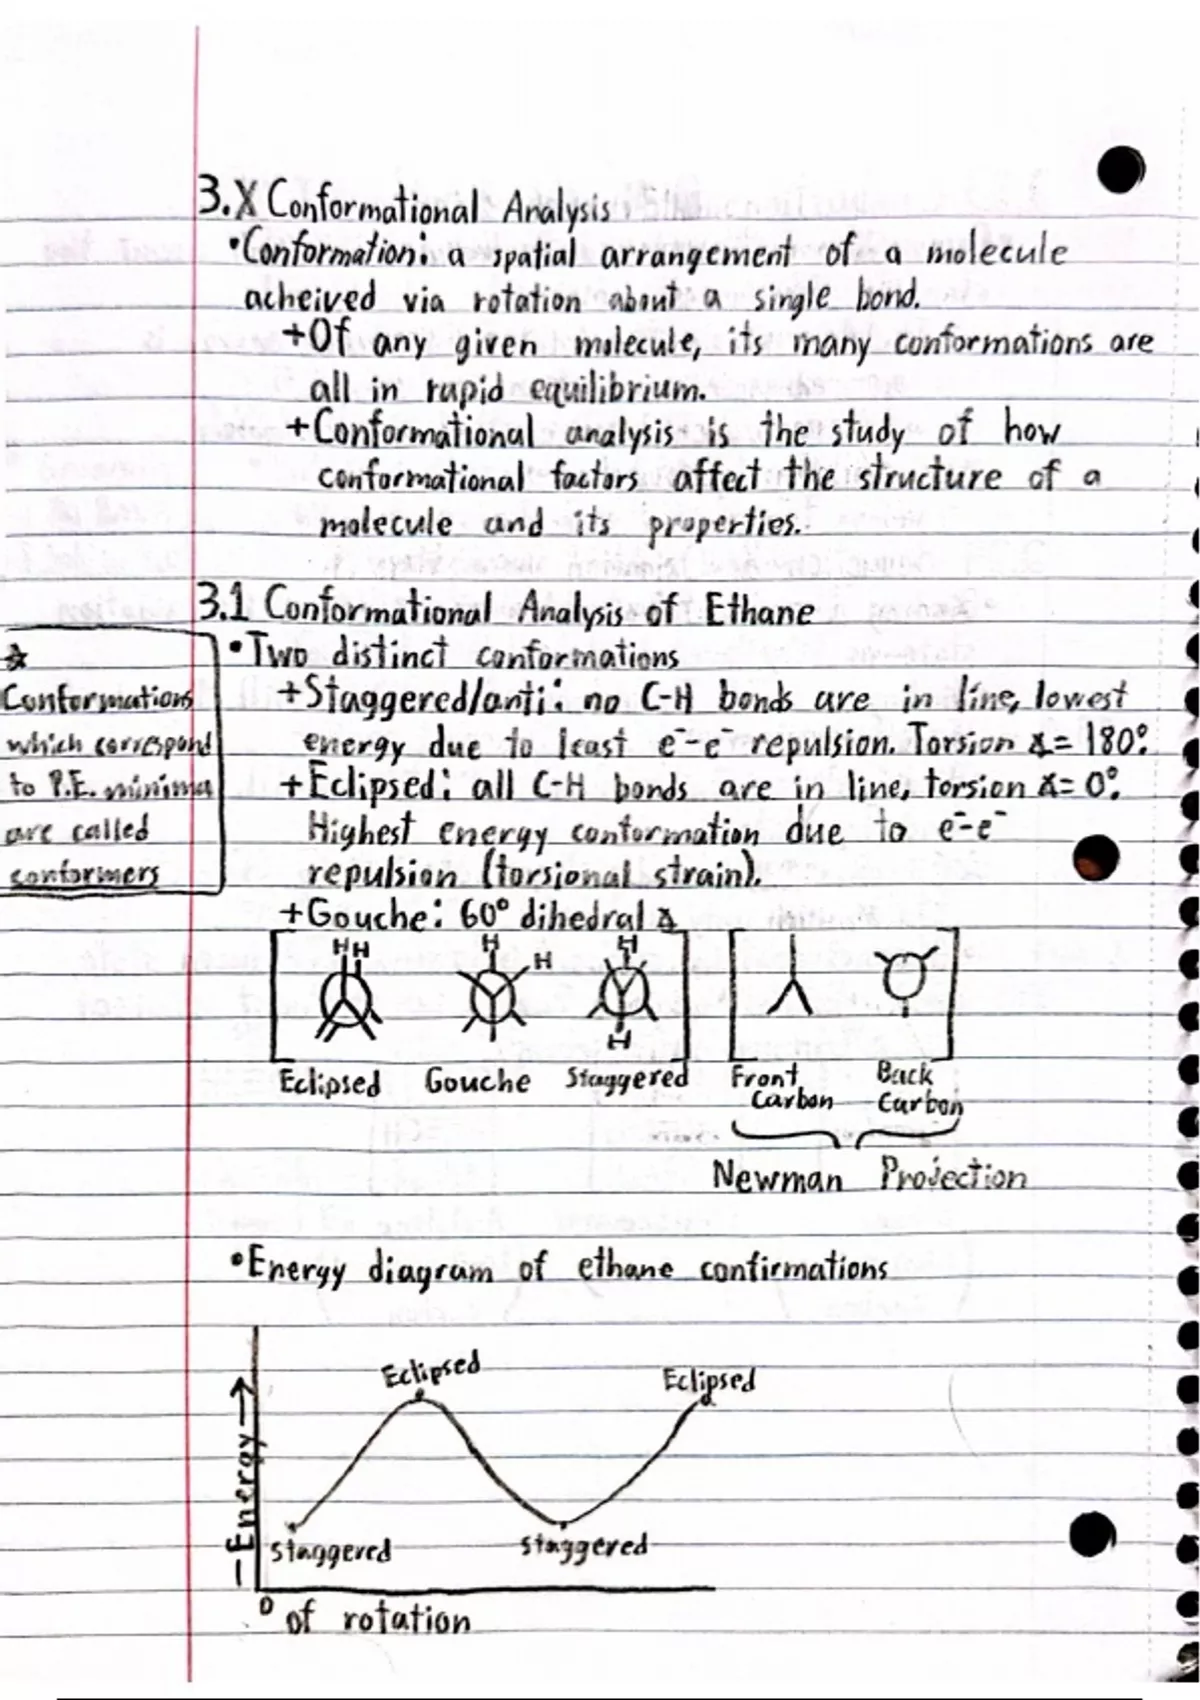 3.X Conformational Analysis
•Conformation: a spatial arrangement of a molecule
acheived via rotation about a single bond.
+Of any given molecule, its many conformations are
all in rapid equilibrium.
+Conformational analysis is the study of how
conformational factors affect the structure of a
molecule and its properties.
3.1 Conformational Analysis of Ethane
•Two distinct conformations
+Staggered/anti: no C-H bonds are in line, lowest
energy due to least e⁻-e⁻ repulsion. Torsion ∡= 180°.
+Eclipsed: all C-H bonds are in line, torsion ∡= 0°.
Highest energy conformation due to e⁻-e⁻
repulsion (torsional strain).
+Gouche: 60° dihedral ∡
☆
Conformations
which correspond
to P.E. minima
are called
conformers
H H H H H
H
Eclipsed Gouche Staggered Front Carbon Back Carbon
Newman Projection
•Energy diagram of ethane confirmations
Eclipsed Eclipsed
Energy→
staggered staggered
° of rotation